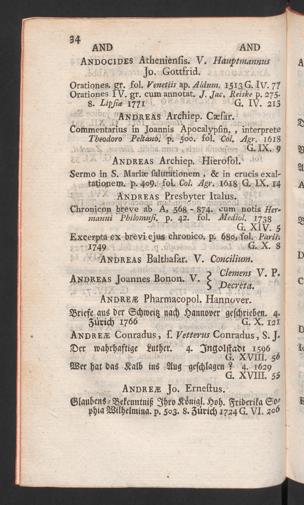 34
AND AND
ANDOCIDES Atheniensis. V. Hauptmannus
Jo. Gottfrid.
Orationes. gr. fol. Venetiis ap. Aldum. 1513 G. IV. 77
Orationes IV. gr. cum annotat. J. Jac. Reiske p. 275.
8. Lipsiæ 1771 G. IV. 215
ANDREAS Archiep. Cæsar.
Commentarius in Joannis Apocalypsin, , interprete
Theodoro Peltano, p. 500. fol. Col. Agr. 1618
G. IX. 9
ANDREAS Archiep. Hierosol.
Sermo in S. Mariæ salutationem, & in crucis exal-
tationem. p. 409. fol. Col. Agr. 1618 G. IX. 14
ANDREAS Presbyter Italus.
Chronicon breve ab A. 568 - 874. cum notis Her-
manni Philomusi, p. 42. fol. Mediol. 1738
G. XIV. 5
Excerpta ex brevi ejus chronico. p. 680. fol. Paris.
1749 G. X. 8
ANDREAS Balthasar. V. Concilium.
ANDREAS Joannes Bonon. V. { Clemens V. P.
Decreta.
ANDREÆ Pharmacopol. Hannover.
Briefe aus der Schweiz nach Hannover geschrieben. 4.
Zürich 1766 G. X. 121
ANDREÆ Conradus, s. Vetterus Conradus, S. J.
Der wahrhaftige Luther. 4. Ingolstadt 1596
G. XVIII. 56
Wer hat das Kalb ins Aug geschlagen? 4. 1629
G. XVIII. 55
ANDREÆ Jo. Ernestus.
Glaubens-Bekenntniß Ihro Königl. Hoh. Friderika So-
phia Wilhelmina. p. 503. 8. Zürich 1724 G. VI. 206